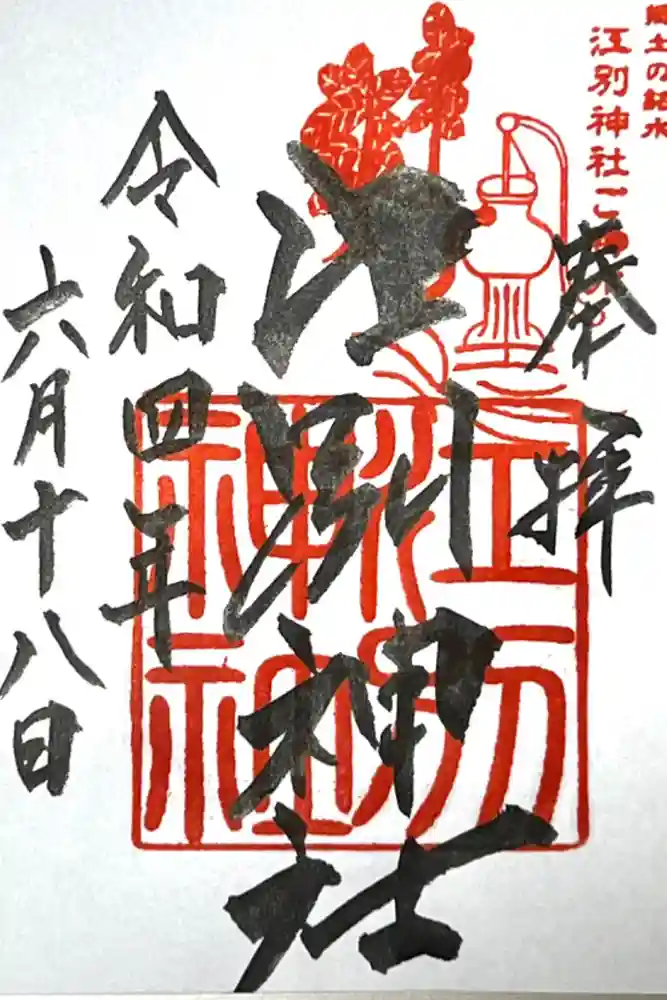 郷土の銘木
江別神社
奉拝
江別神社
江別神社
令和四年
六月十八日